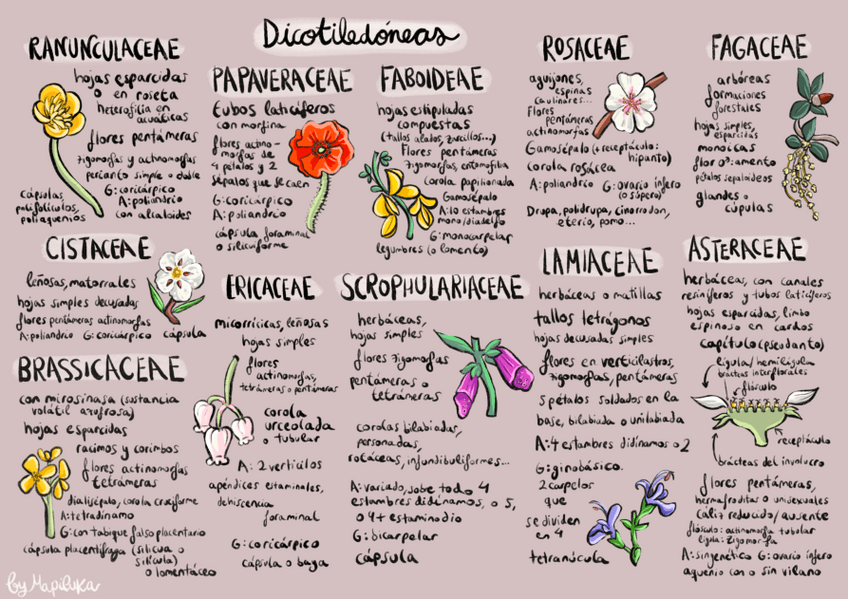 Dicotiledóneas
RANUNCULACEAE
hojas esparcidas
o en roseta
heterofilia en
acuáticas
flores pentámeras
zigomorfas y actnomorfas
perianto simple o doble
G: coricárpico
A: poliandrio
con alcaloides
cápsulas,
polifolículos,
poliaquenios
PAPAVERACEAE
tubos laticíferos
con morfina
flores actino-
morfas de
4 pétalos y 2
sépalos que se caen
G: coricárpico
A: poliandrio
cápsula foraminal
o silicuiforme
FABOIDEAE
hojas estipuladas
compuestas
(tallos alados, zarcillos...)
Flores pentámeras
zigomorfas, entomofilia
corola papilionada
Gamosépalo
A: 10 estambres
mono/diadelfo
G: monocarpelar
legumbres (o lomento)
ROSACEAE
aguijones,
espinas
caulinares...
Flores
pentámeras
actinomorfas
Gamosépalo (+ receptáculo:
hipanto)
corola rosácea
A: poliandrio G: ovario ínfero
(o súpero)
Drupa, polidrupa, cinorrodon,
eterio, pomo...
FAGACEAE
arbóreas
formaciones
forestales
hojas simples,
esparcidas
monoicas
flor ♂: amento
pétalos sepaloideos
glandes o
cúpulas
CISTACEAE
leñosas, matorrales
hojas simples decusadas
flores pentámeras actinomorfas
A: poliandrio G: coricárpico cápsula
BRASSICACEAE
con mirosinasa (sustancia
volátil azufrosa)
hojas esparcidas
racimos y corimbos
flores actinomorfas
tetrámeras
dialisépalo, corola cruciforme
A: tetradínamo
G: con tabique falso placentario
cápsula placentífraga (silicua o
silícula)
o lomentáceo
ERICACEAE
micorrícicas, leñosas
hojas simples
flores
actinomorfas,
tetrámeras o pentámeras
corola
urceolada
o tubular
A: 2 verticilos
apéndices estaminales,
dehiscencia
foraminal
G: coricárpico
cápsula o baya
SCROPHULARIACEAE
herbáceas,
hojas simples
flores zigomorfas
pentámeras o
tetrámeras
corolas bilabiadas,
personadas,
rotáceas, infundibuliformes...
A: variado, sobe todo 4
estambres didínamos, o 5,
o 4 + estaminodio
G: bicarpelar
cápsula
LAMIACEAE
herbáceas o matillas
tallos tetrágonos
hojas decusadas simples
flores en verticilastros,
zigomorfas, pentámeras
5 pétalos soldados en la
base, bilabiada o unilabiada
A: 4 estambres didínamos o 2
G: ginobásico.
2 carpelos
que
se dividen
en 4
tetranúcula
ASTERACEAE
herbáceas, con canales
resiníferos y tubos laticíferos
hojas esparcidas, limbo
espinoso en cardos
capítulo (pseudanto)
lígula/hemilígula
brácteas interflorales
flósculo
receptáculo
brácteas del involucro
flores pentámeras,
hermafroditas o unisexuales
cáliz reducido/ausente
flósculo: actinomorfa tubular
lígula: zigomorfa
A: singenético G: ovario ínfero
aquenio con o sin vilano
by Mapiluka